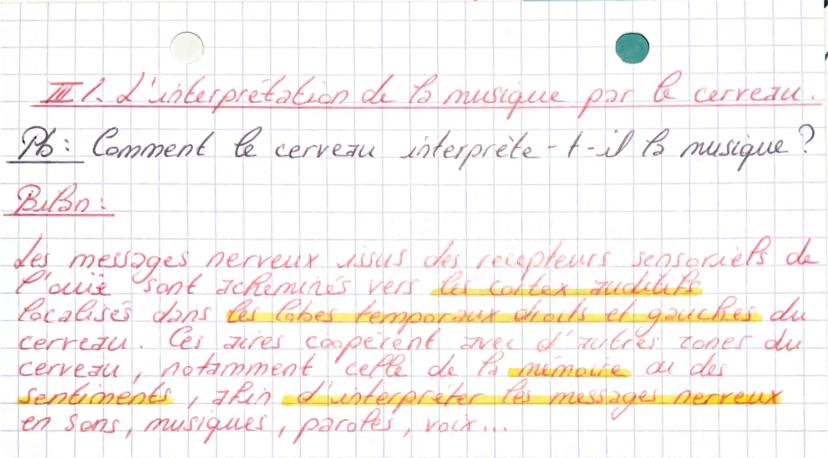 III/. L'interprétation de la musique par le cerveau.
Pb : Comment le cerveau interprète-t-il la musique ?
Bilan :
Les messages nerveux issus des récepteurs sensoriels de
l'ouïe sont acheminés vers les cortex auditifs
localisés dans les lobes temporaux droits et gauches du
cerveau. Ces aires coopèrent avec d'autres zones du
cerveau, notamment celle de la mémoire ou des
sentiments, afin d'interpréter les messages nerveux
en sons, musiques, paroles, voix...